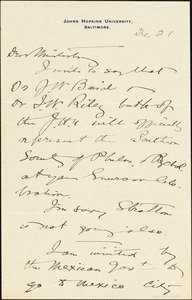 JOHNS HOPKINS UNIVERSITY,
BALTIMORE.
Dec 21
Dear
I write to say that
Dr J W Baird
or I W Riley both of
the J.H.U will officially
represent the Southern
Society of Philos. & Psychol
at your Emerson Cele
bration
I'm sorry Stratton
is not going also
I am invited by
the Mexican Gov't to
go to Mexico City